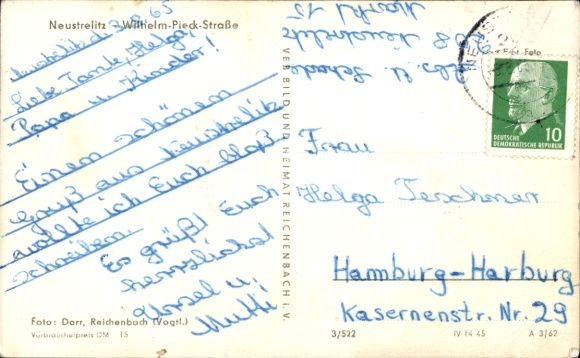 Neustrelitz - Wilhelm-Pieck-Straße
Neustrelitz, d. 65
Liebe Tante, Helga,
Papa u. Kinder!
Einen schönen
gruß aus Neustrelitz
wollte ich Euch bloß
schreiben.
Es grüßt Euch
herzlichst
Ursel u.
Mutti
Foto: Darr, Reichenbach (Vogtl.)
Verbraucherpreis DM 15
VERB BILD UND HEIMAT REICHENBACH i. V.
Abs. U.
208 Neustrelitz
Markt 15
Echt Foto
10
DEUTSCHE
DEMOKRATISCHE REPUBLIK
Frau
Helga Teschner
Hamburg-Harburg
Kasernenstr. Nr. 29
3/522
IV-14-45
A 3/62